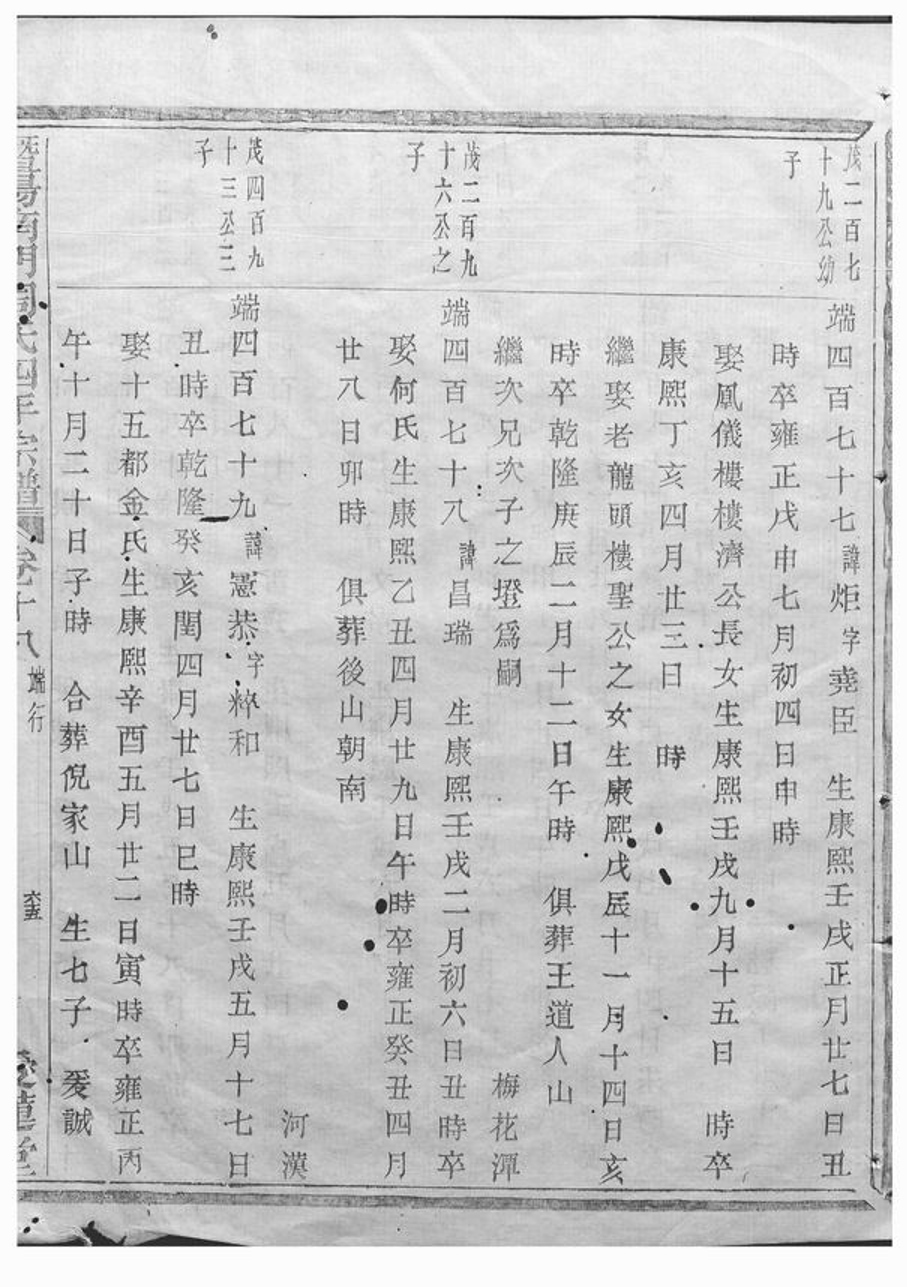 茂二百七
十九公幼
子
端四百七十七諱炬字堯臣　生康熙壬戌正月廿七日丑
時卒雍正戊申七月初四日申時
娶鳳儀樓樓濟公長女生康熙壬戌九月十五日　時卒
康熙丁亥四月廿三日　時
繼娶老龍頭樓聖公之女生康熙戊辰十一月十四日亥
時卒乾隆庚辰二月十二日午時　俱葬王道人山
繼次兄次子之璒爲嗣　梅花潭
茂二百九
十六公之
子
端四百七十八　諱昌瑞　生康熙壬戌二月初六日丑時卒
娶何氏生康熙乙丑四月廿九日午時卒雍正癸丑四月
廿八日卯時　俱葬後山朝南
河濱
茂四百九
十三公三
子
端四百七十九諱憲恭字粹和　生康熙壬戌五月十七日
丑時卒乾隆癸亥閏四月廿七日巳時
娶十五都金氏生康熙辛酉五月廿二日寅時卒雍正丙
午十月二十日子時　合葬倪家山　生七子　爰誠
暨陽南門周氏四年宗譜　卷十八　端行